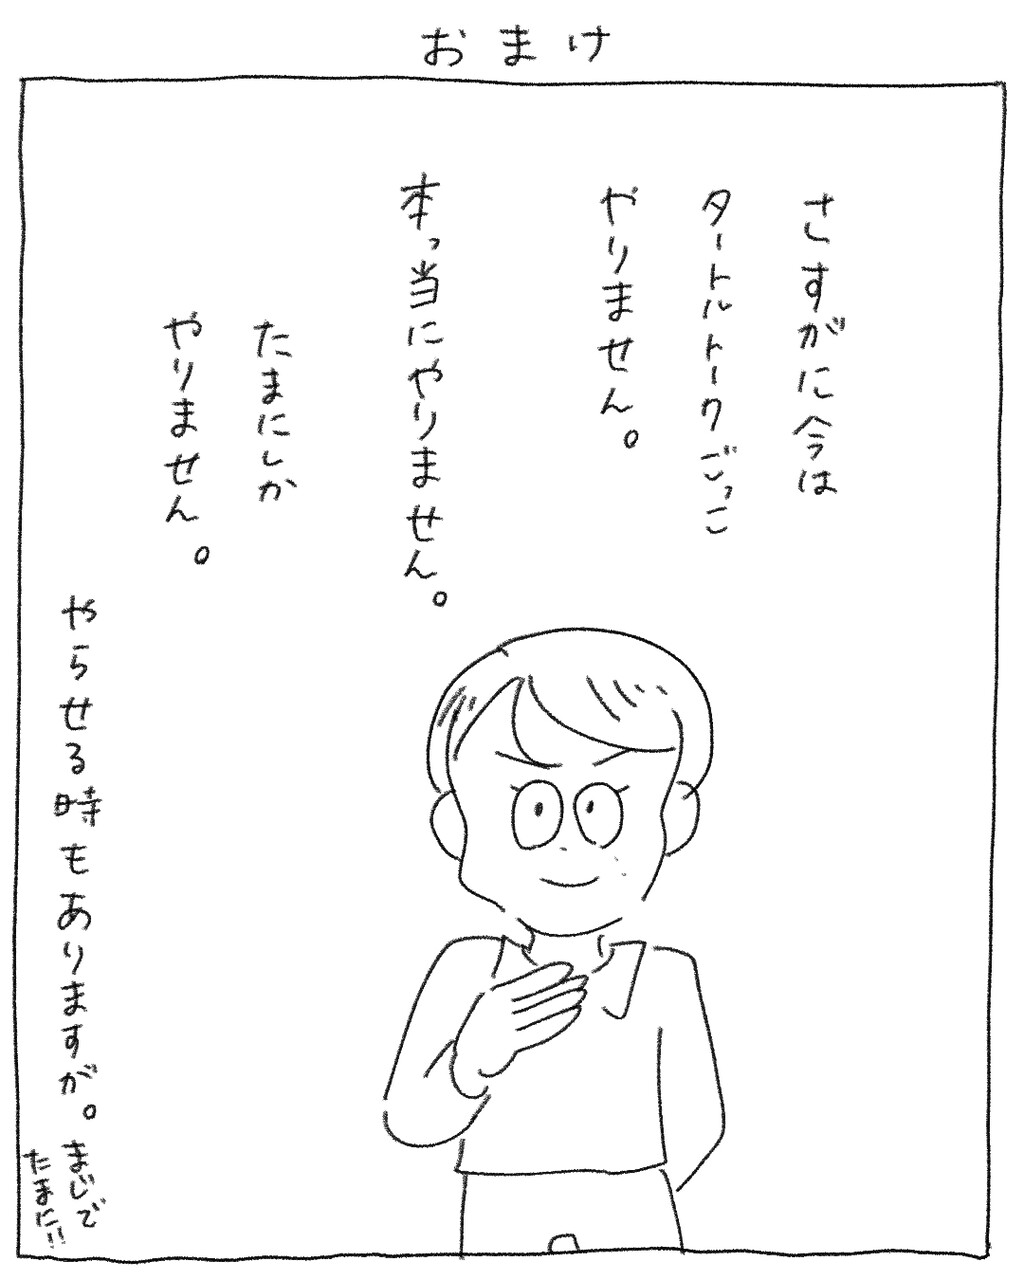 おまけ
さすがに今は
タートルトークごっこ
やりません。
本っ当にやりません。
たまにしか
やりません。
やらせる時もありますが。まじで
たまに!!